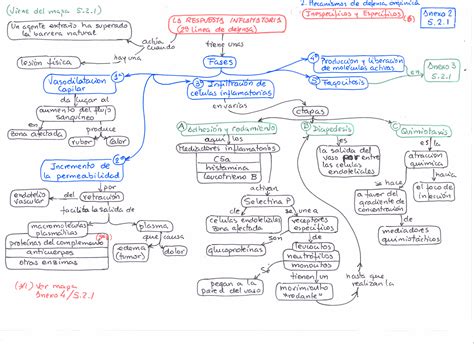 (Viene del mapa 5.2.1)
Un agente extraño ha superado
la barrera natural
actúa
cuando
hay una
lesión física
LA RESPUESTA INFLAMATORIA
(2ª línea de defensa)
tiene unas
Fases
2. Mecanismos de defensa orgánica
Inespecíficos y Específicos
Anexo 2
5.2.1
4º Producción y liberación
de moléculas activas
5º Fagocitosis
Anexo 3
5.2.1
1º
Vasodilatación
Capilar
da lugar al
aumento del flujo
sanguíneo
en
zona afectada
produce
rubor
calor
3º Infiltración de
células inflamatorias
en varias
etapas
A Adhesión y rodamiento
aquí los
Mediadores inflamatorios
C5a
histamina
leucotrieno B
activan
Selectina P
de
células endoteliales
zona afectada
se une a
receptores
específicos
glucoproteínas
Son
de
leucocitos
neutrófilos
monocitos
tienen un
movimiento
"rodante"
pegan a la
pared del vaso
Se
hasta que
realizan la
B Diapedesis
es
la salida del
vaso por entre
las células
endoteliales
C Quimiotaxis
es la
atracción
química
hacia
el foco de
infección
a favor del
gradiente de
concentración
de
mediadores
quimiotácticos
2º
Incremento de
la permeabilidad
por
retracción
del
endotelio
vascular
facilita la salida de
macromoléculas
plasmáticas
proteínas del complemento
anticuerpos
otras enzimas
plasma
que causa
edema
(tumor)
dolor
(*1) Ver mapa
Anexo 4 / 5.2.1